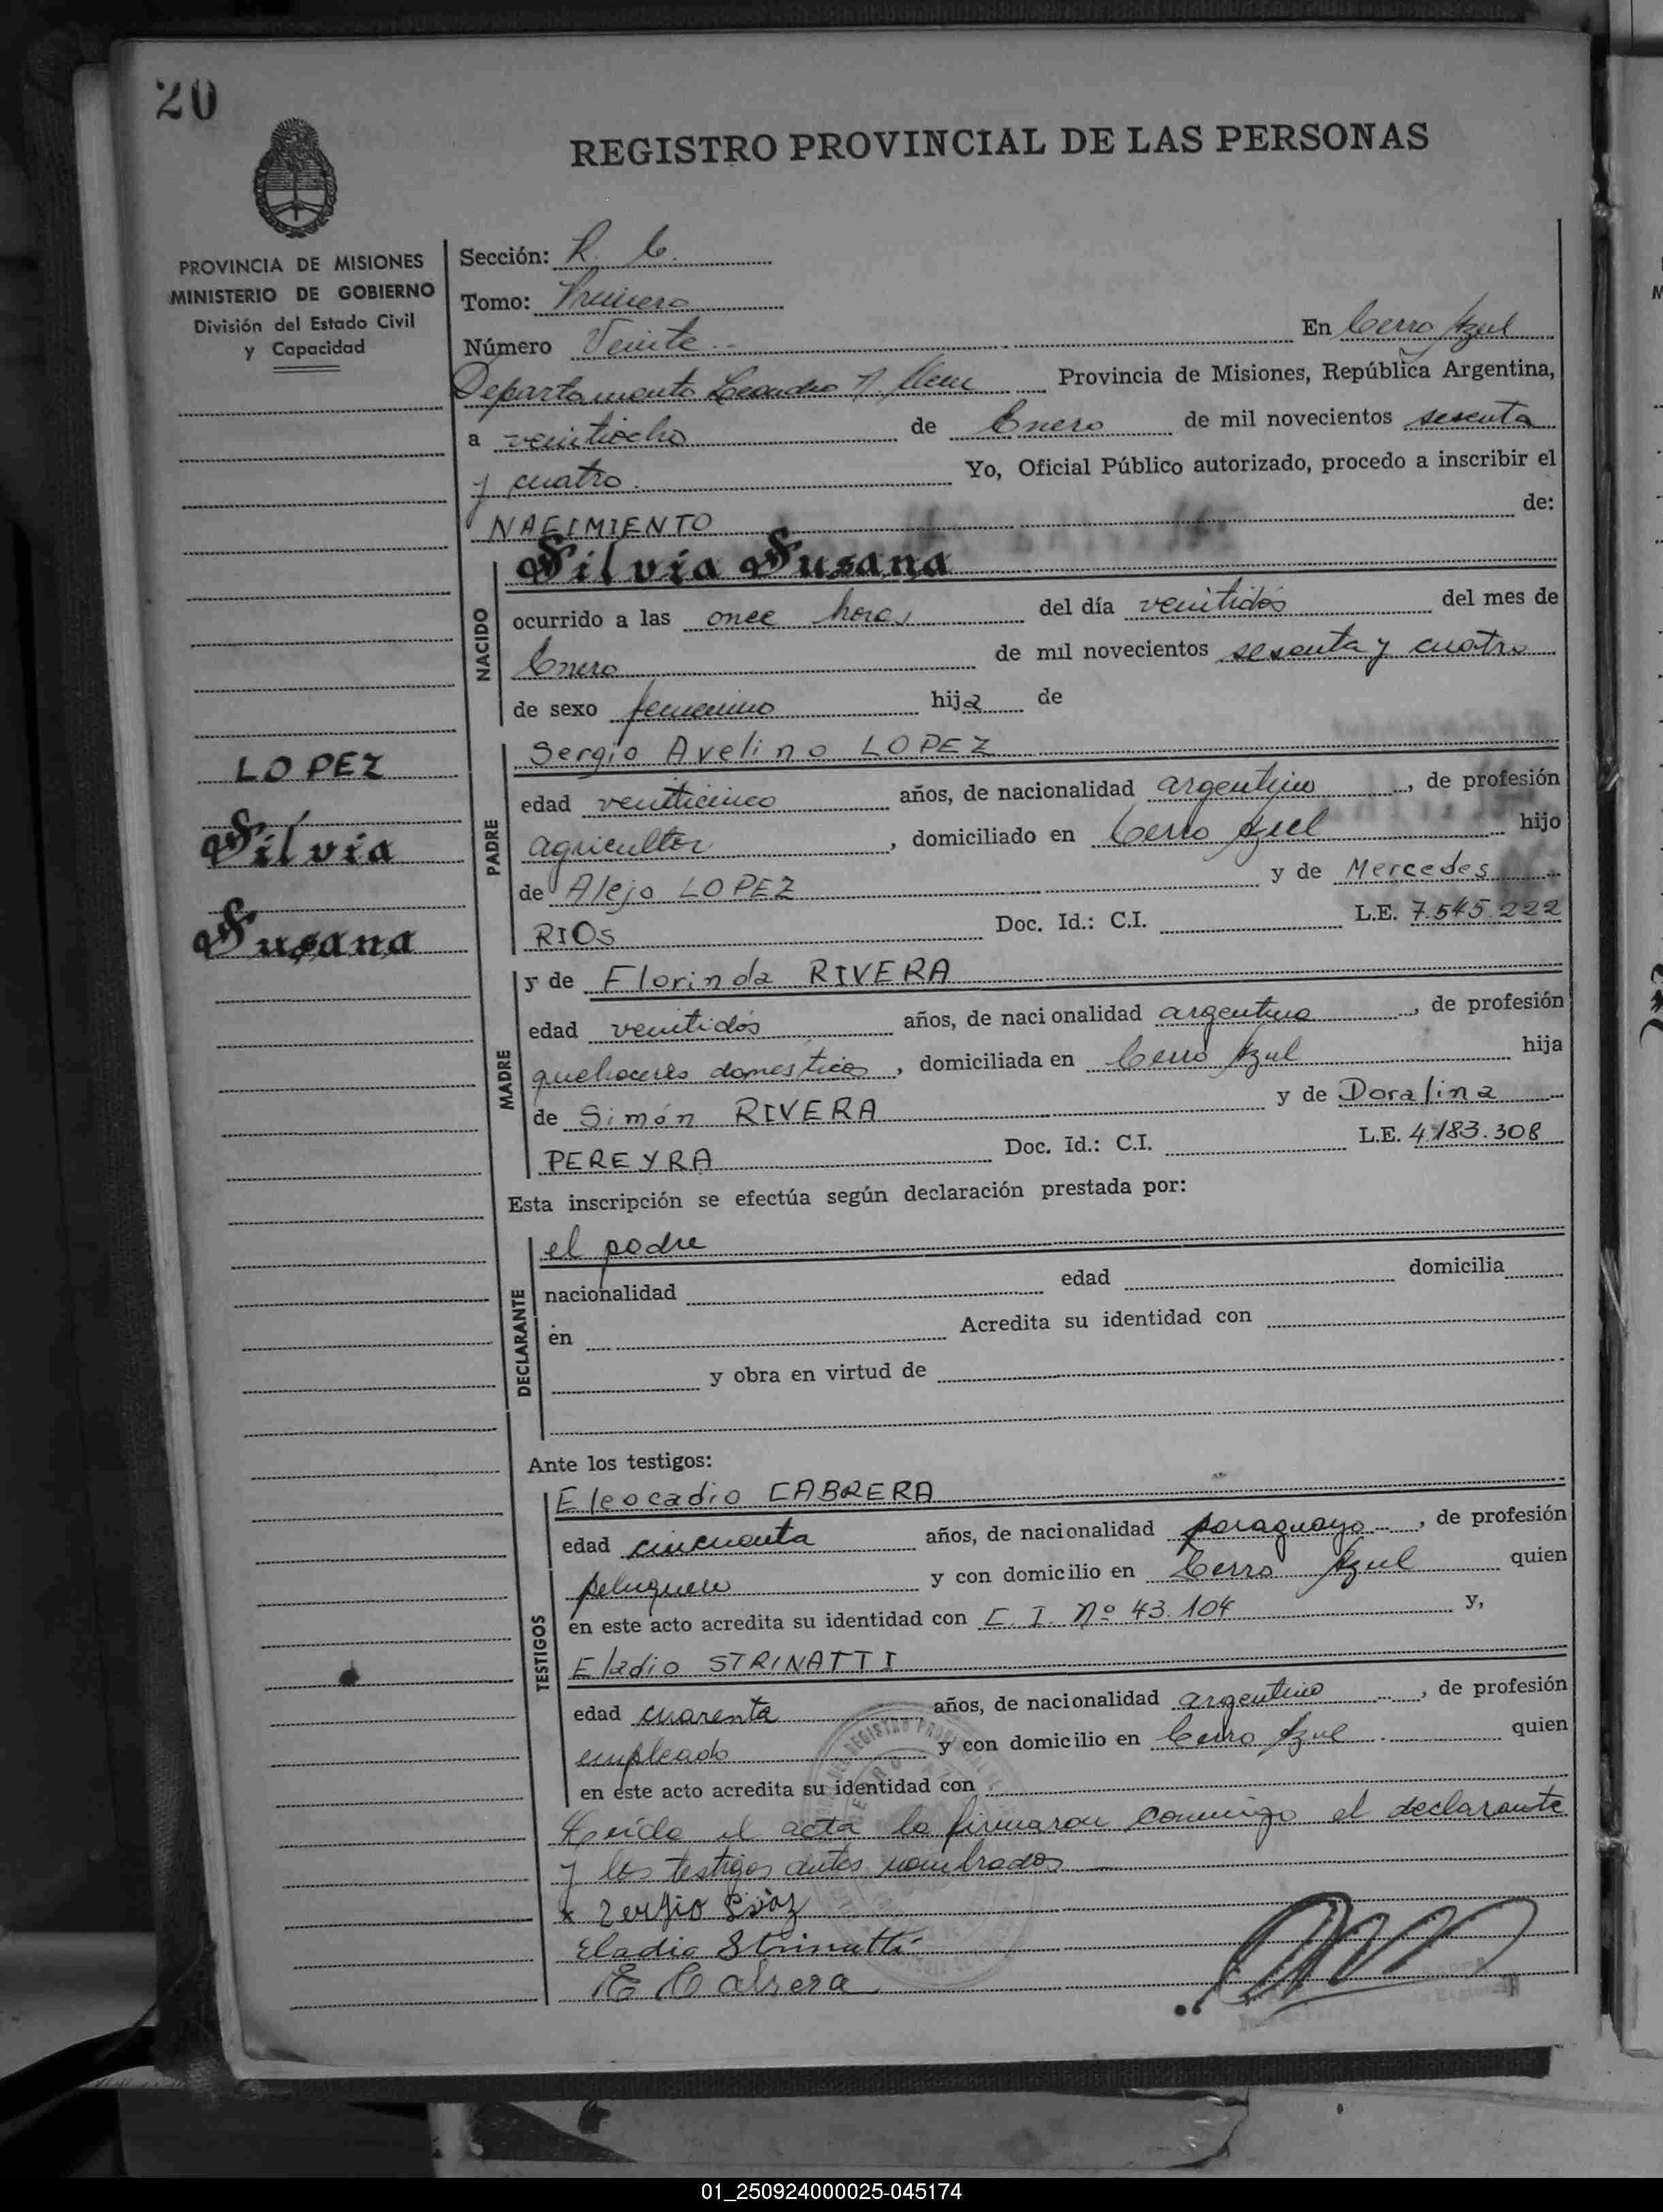 20
REGISTRO PROVINCIAL DE LAS PERSONAS
PROVINCIA DE MISIONES
MINISTERIO DE GOBIERNO
División del Estado Civil
y Capacidad
LOPEZ
Silvia
Susana
Sección: R. C.
Tomo: Primero
Número Veinte En Cerro Azul
Departamento Leandro N. Alem Provincia de Misiones, República Argentina,
a veintiocho de Enero de mil novecientos sesenta
y cuatro. Yo, Oficial Público autorizado, procedo a inscribir el
NACIMIENTO de:
NACIDO
Silvia Susana
ocurrido a las once horas del día veintidós del mes de
Enero de mil novecientos sesenta y cuatro
de sexo femenino hija de
PADRE
Sergio Avelino LOPEZ
edad veinticinco años, de nacionalidad argentino, de profesión
agricultor, domiciliado en Cerro Azul hijo
de Alejo LOPEZ y de Mercedes
RIOS Doc. Id.: C.I. L.E. 7.545.222
MADRE
y de Florinda RIVERA
edad veintidós años, de nacionalidad argentina, de profesión
quehaceres domésticos, domiciliada en Cerro Azul hija
de Simón RIVERA y de Doralina
PEREYRA Doc. Id.: C.I. L.E. 4.183.308
Esta inscripción se efectúa según declaración prestada por:
DECLARANTE
el padre
nacionalidad edad domicilia
en Acredita su identidad con
y obra en virtud de
Ante los testigos:
TESTIGOS
Eleocadio CABRERA
edad cincuenta años, de nacionalidad paraguayo, de profesión
peluquero y con domicilio en Cerro Azul quien
en este acto acredita su identidad con C. I. Nº 43.104 y,
Eladio STRINATTI
edad cuarenta años, de nacionalidad argentino, de profesión
empleado y con domicilio en Cerro Azul quien
en este acto acredita su identidad con
Leída el acta la firmaron conmigo el declarante
y los testigos antes nombrados
x
Eladio Strinatti
E Cabrera
01_250924000025-045174